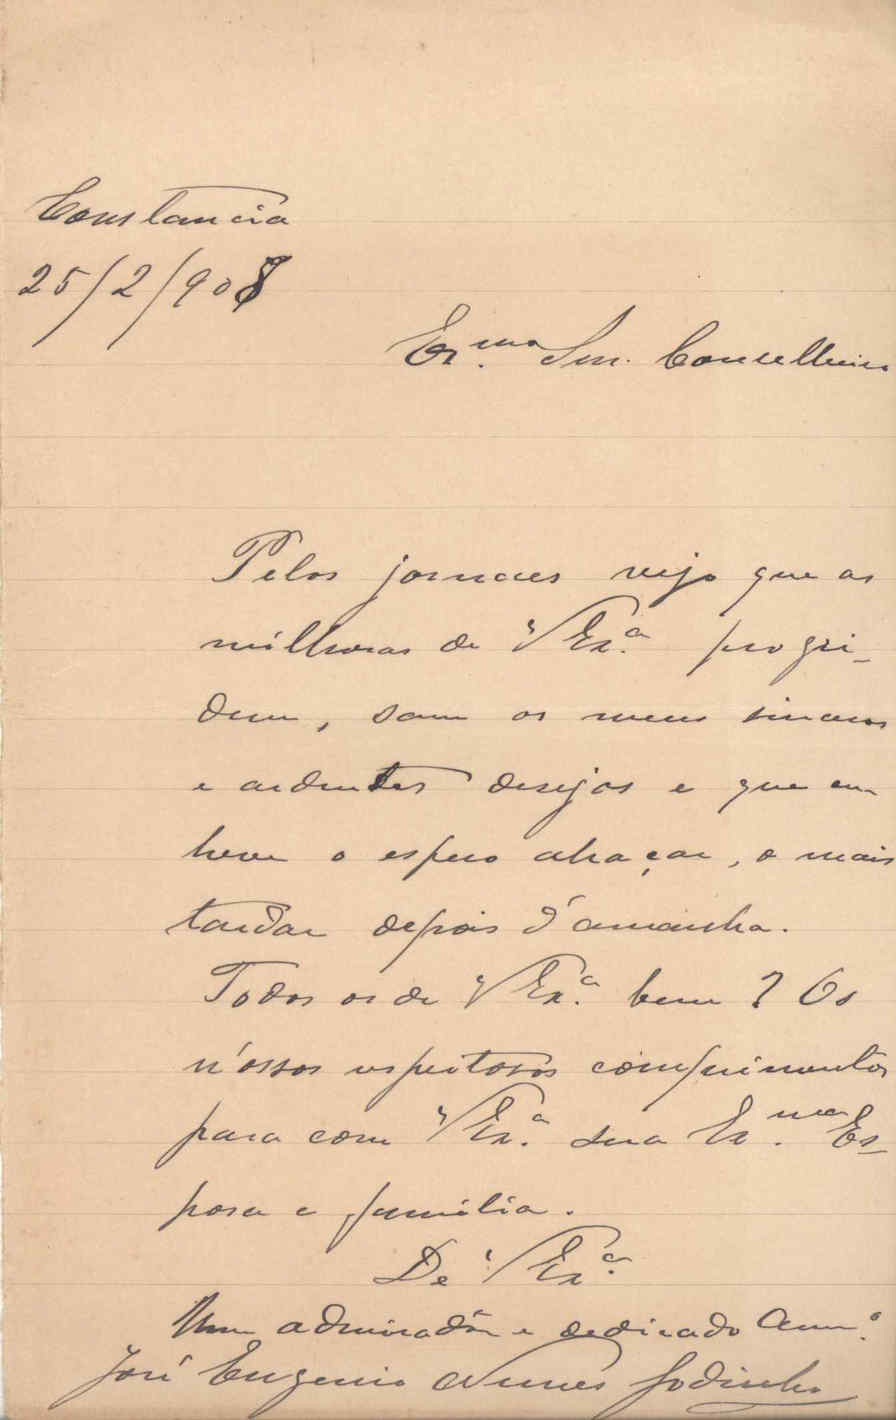 Constancia
25/2/908
Ex.mo Snr. Conselheiro
Pelos jornaes vejo que as
milhoras de V Ex.a progri-
dem, sam os meus sinceros
e ardentes desejos e que em
breve o espero abraçar, o mais
tardar depois d'amanha.
Todos os de V Ex.a bem? Os
n'ossos respeitosos comprimentos
para com V Ex.a sua Ex.ma Es-
posa e familia.
De V Ex.a
Um admirador e dedicado Am.o
José Eugenio Nunes Godinho